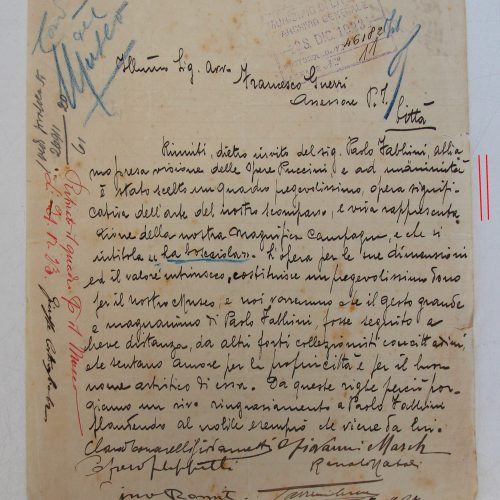 Museo
ARCHIVIO GENERALE
26 DIC. 1923
46182
11
Illmo Sig. Avv.
Francesco Guerri
Assessore P. I.
Città
Riuniti, dietro invito del sig. Paolo Fabbrini, abbia
mo presa visione delle Opere Puccini e ad unanimità
è stato scelto un quadro pregevolissimo, opera signifi-
cativa dell'arte del nostro scomparso, e viva rappresenta-
zione della nostra magnifica campagna, e che si
intitola "La boscaiola". L'opera per le sue dimensioni
ed il valore intrinseco, costituisce un pregevolissimo dono
per il nostro Museo, e noi vorremmo che il gesto grande
e magnanimo di Paolo Fabbrini, fosse seguito a
breve distanza, da altri forti collezionisti concittadini,
che sentano amore per la propria città e per il buon
nome artistico di essa. Da queste righe perciò por-
giamo un vivo ringraziamento a Paolo Fabbrini
plaudendo al nobile esempio che viene da lui.
Giovanni March
Renato Natali
Gino Romiti